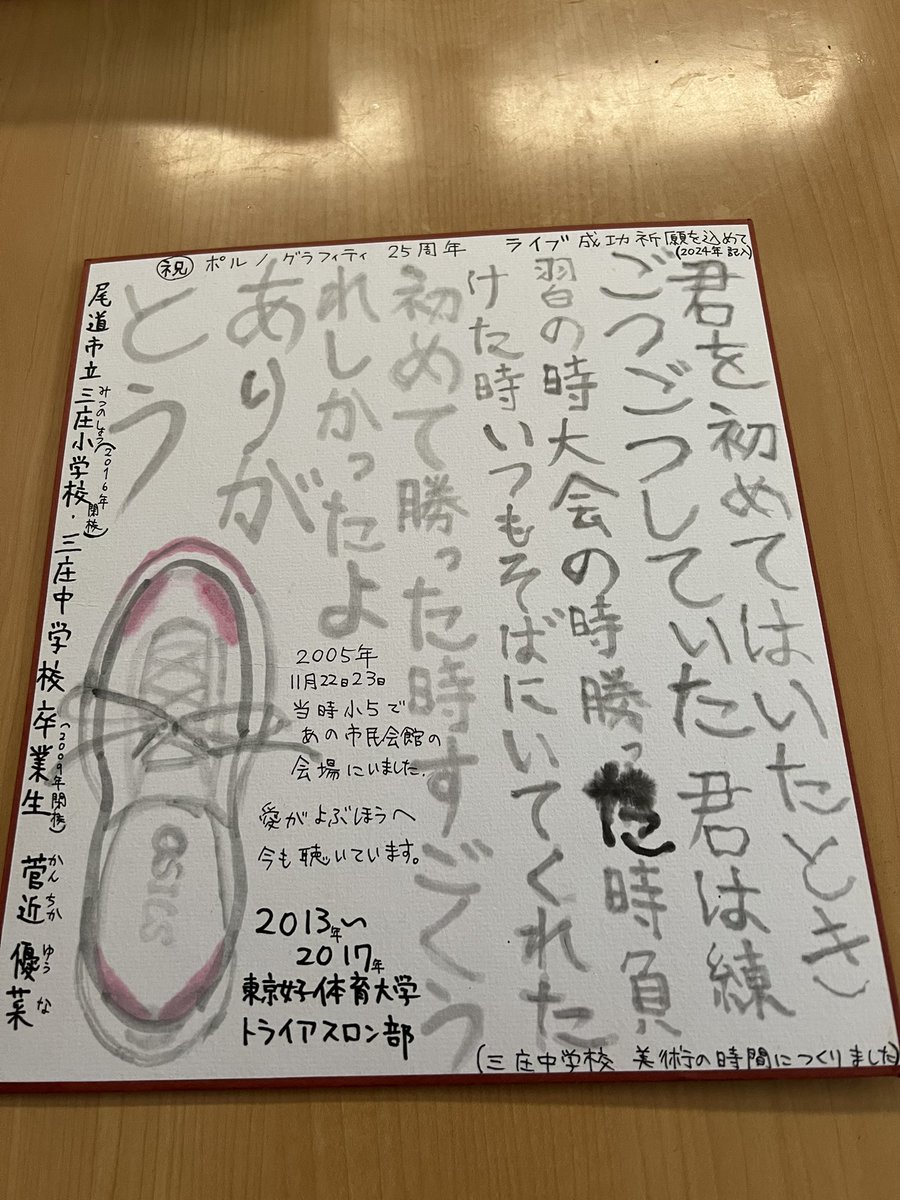 ㊗ ポルノグラフィティ 25周年 ライブ成功祈願を込めて
(2024年 記入)
君を初めてはいたとき
ごつごつしていた 君は練
習の時大会の時勝った時負
けた時いつもそばにいてくれた
初めて勝った時すごくう
れしかったよ
ありが
とう
asics
2005年
11月22日23日
当時小5で
あの市民会館の
会場にいました。
愛がよぶほうへ
今も聴いています。
2013年〜
2017年
東京女子体育大学
トライアスロン部
尾道市立三庄小学校・三庄中学校卒業生 菅近 優菜
みつのしょう(2016年閉校)
(2009年閉校)
かん ちか ゆう な
(三庄中学校 美術の時間につくりました)